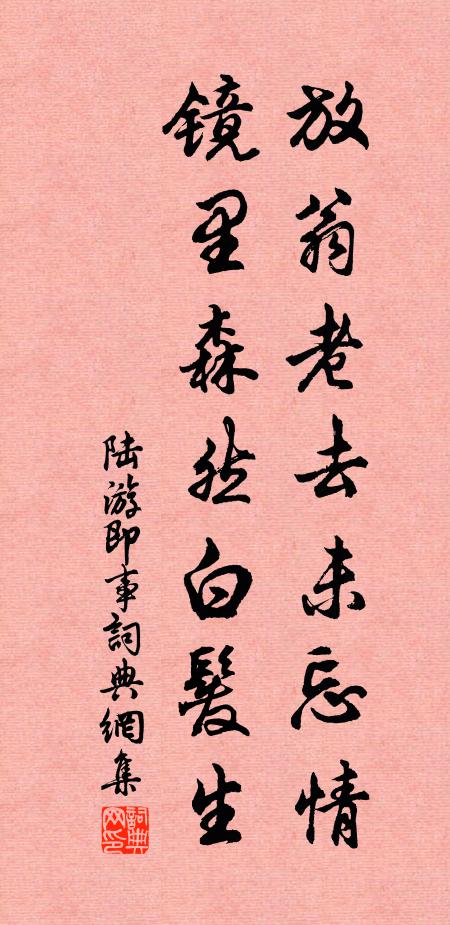 放翁老去未忘情
镜里森然白髮生
陆游即事詞典網集
詞典网印